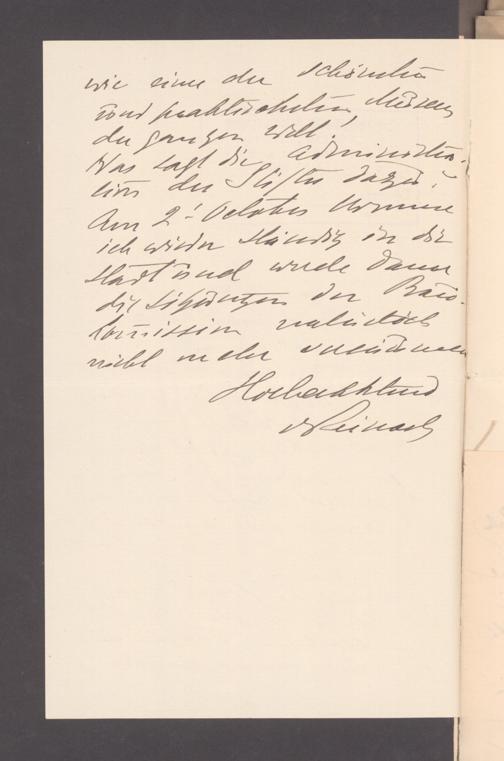 wie eines der schönsten
und praktischsten Museen
der ganzen Welt!
Was sagt die Administra-
tion der Stifte dazu?
Am 2t October komme
ich wieder ständig in die
Stadt und werde dann
die Sitzungen der Bau-
Comission natürlich
nicht mehr versäumen
Hochachtend
vReinach